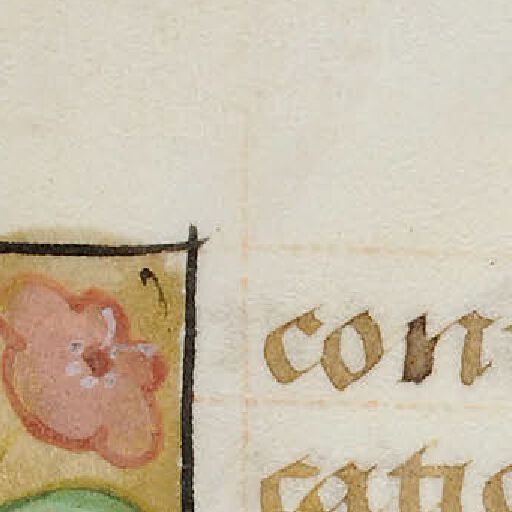 con
catio